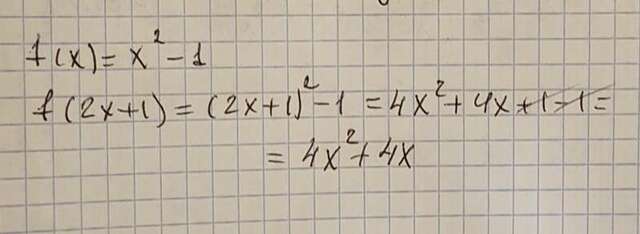 f(x) = x² - 1
f(2x+1) = (2x+1)² - 1 = 4x² + 4x + 1 - 1 =
= 4x² + 4x